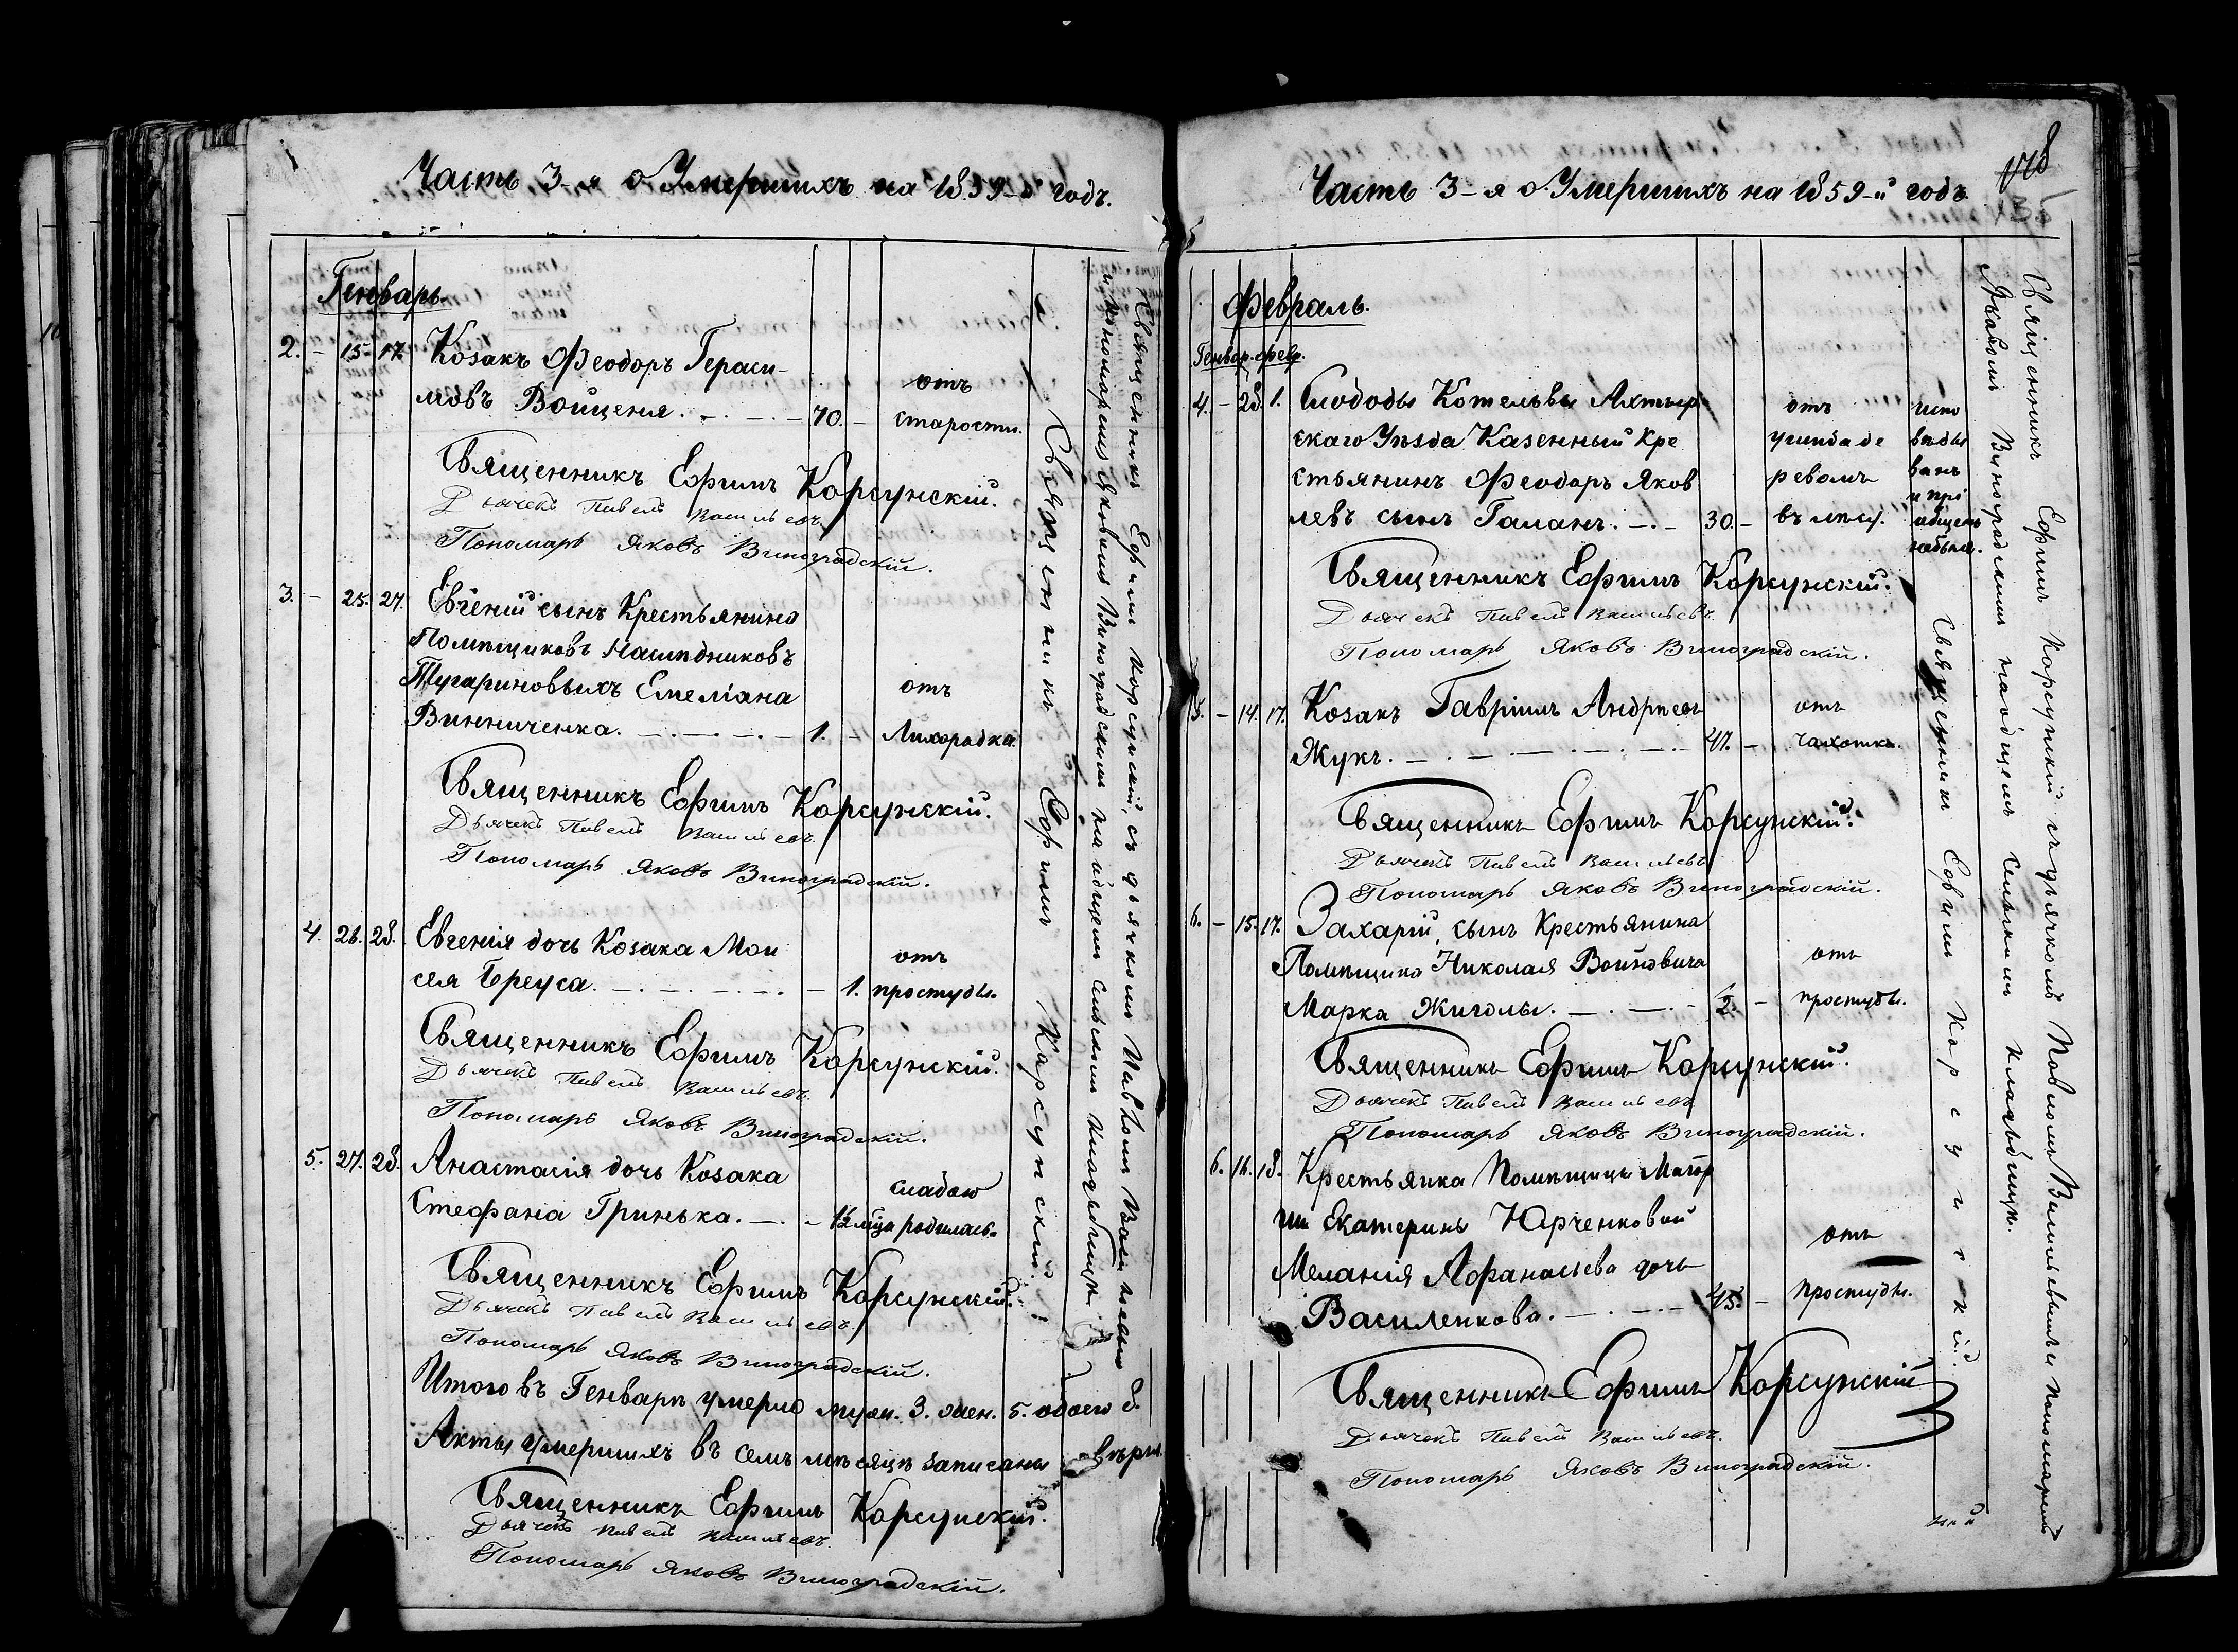 Часть 3-я о Умершихъ на 1859-й годъ.
Генварь.
2. – 15. 17. Козакъ Феодоръ Гераси-
мовъ Войценя. 70. – отъ старости.
Священникъ Ефимъ Корсунскій.
Дьячекъ Павелъ Васильевъ.
Пономарь Яковъ Виноградскій.
3. – 25. 27. Евгеній сынъ Крестьянина
Помѣщиковъ Наслѣдниковъ
Тугариновыхъ Емеліана
Винниченка. 1. – отъ Лихорадка.
Священникъ Ефимъ Корсунскій.
Дьячекъ Павелъ Васильевъ.
Пономарь Яковъ Виноградскій.
4. 26. 28. Евгенія дочь Козака Мои
сея Бреуса. – 1. отъ простуды.
Священникъ Ефимъ Корсунскій.
Дьячекъ Павелъ Васильевъ.
Пономарь Яковъ Виноградскій.
5. 27. 28. Анастасія дочь Козака
Стефана Гринька. – 1/2 мца слабою родилась.
Священникъ Ефимъ Корсунскій.
Дьячекъ Павелъ Васильевъ.
Пономарь Яковъ Виноградскій.
Итого въ Генварѣ умерло муж. 3. жен. 5. обоего 8.
Акты умершихъ въ семъ мѣсяцѣ записаны вѣрн
Священникъ Ефимъ Корсунскій.
Дьячекъ Павелъ Васильевъ.
Пономарь Яковъ Виноградскій.
Священникъ Ефимъ Корсунскій.
Священникъ Ефимъ Корсунскій, съ дьячкомъ Павломъ
и пономаремъ Яковомъ Виноградскимъ на общемъ сельскомъ кладбищѣ.
Часть 3-я о Умершихъ на 1859-й годъ.
178
Февраль.
Генвар. февр.
4. – 28. 1. Слободы Котельвы Ахтыр
скаго Уѣзда Казенный Кре
стьянинъ Феодоръ Яков
левъ сынъ Галанъ. 30. –
отъ
де
ревомъ
въ лѣсу.
испо
вѣды
ванъ
и прі
общенъ
Священникъ Ефимъ Корсунскій.
Дьячекъ Павелъ Васильевъ.
Пономарь Яковъ Виноградскій.
5. – 14. 17. Козакъ Гавріилъ Андреевъ
Жукъ. 47. – отъ чахотки.
Священникъ Ефимъ Корсунскій.
Дьячекъ Павелъ Васильевъ
Пономарь Яковъ Виноградскій.
6. – 15. 17. Захарій, сынъ Крестьянина
Помѣщика Николая Войновича
Марка Жиголы. 2. – отъ простуды.
Священникъ Ефимъ Корсунскій.
Дьячекъ Павелъ Васильевъ
Пономарь Яковъ Виноградскій.
6. 16. 18. Крестьянка Помѣщицы Маіор
ши Екатерины Юрченковой
Меланія Афанасьева дочь
Василенкова. 45. – отъ простуды.
Священникъ Ефимъ Корсунскій
Дьячекъ Павелъ Васильевъ.
Пономарь Яковъ Виноградскій.
Священникъ Ефимъ Корсунскій.
Священникъ Ефимъ Корсунскій съ дьячкомъ Павломъ Васильевымъ и пономаремъ
Яковомъ Виноградскимъ на общемъ сельскомъ кладбищѣ.